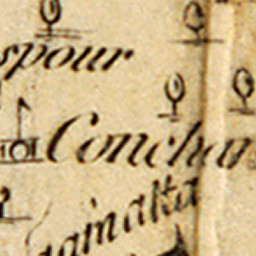 spour
Conchan
gamalta